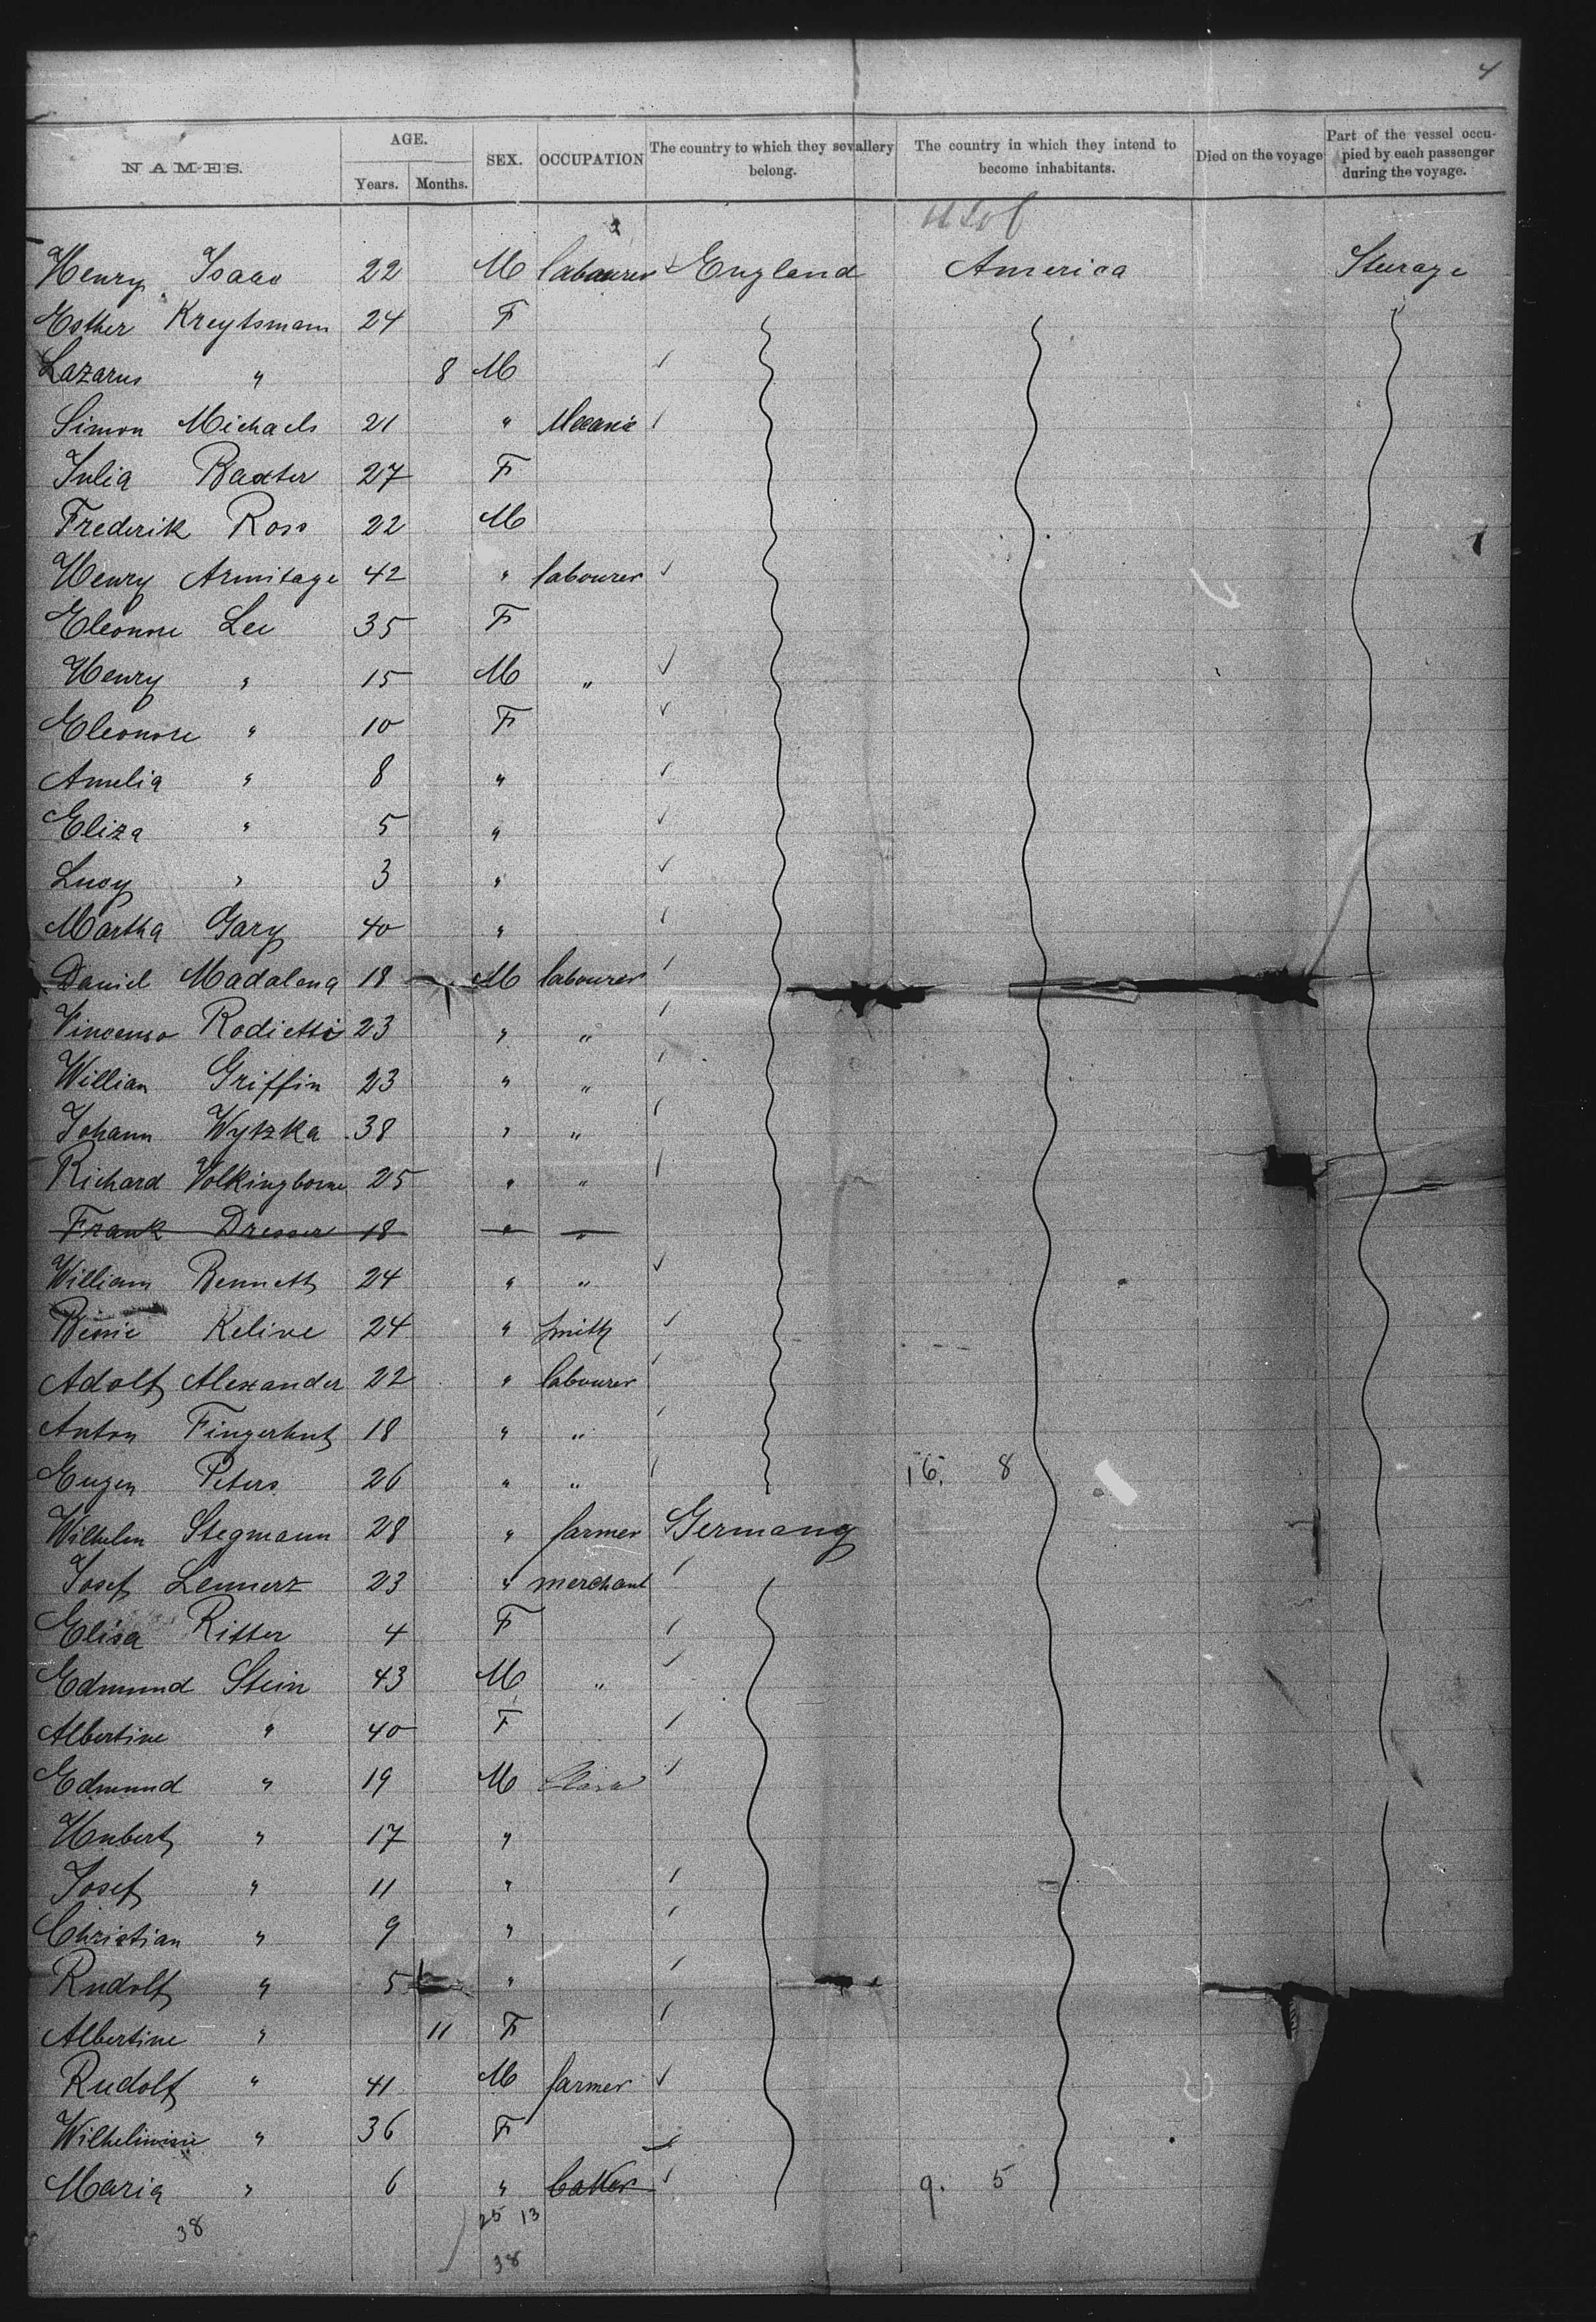 4
NAMES. AGE. Years. Months. SEX. OCCUPATION The country to which they sevallery belong. The country in which they intend to become inhabitants. Died on the voyage Part of the vessel occupied by each passenger during the voyage.
Henry Isaac 22 M labourer England America Steurage
Esther Kreytsmam 24 F
Lazarus " 8 M
Simon Michaels 21 "
Julia Baxter 27 F
Frederik Ross 22 M
Henry Armitage 42 " labourer
Eleonore Lee 35 F
Henry " 15 M "
Eleonore " 10 F
Amelia " 8 "
Eliza " 5 "
Lucy " 3 "
Martha Gary 40 "
Daniel Madalena 18 M labourer
Vincenso Rodietti 23 " "
Willian Griffin 23 " "
Johann Wytzka 38 " "
Richard Volkingborne 25 " "
Frank Dresser 18 " "
William Bennett 24 " "
Kelive 24 " smith
Adolf Alexander 22 " labourer
Anton Fingerhut 18 " "
Eugen Peters 26 " " 16. 8
Wilhelm Stegmann 28 " farmer Germany
Josef Lennerz 23 " merchant
Elisa Ritter 4 F
Edmund Stein 43 M "
Albertine " 40 F
Edmund " 19 M
Hubert " 17 "
Josef " 11 "
Christian " 9 "
Rudolf " 5 "
Albertine " 11 F
Rudolf " 41 M farmer
Wilhelmine " 36 F
Maria " 6 " 9. 5
25 13
38
38